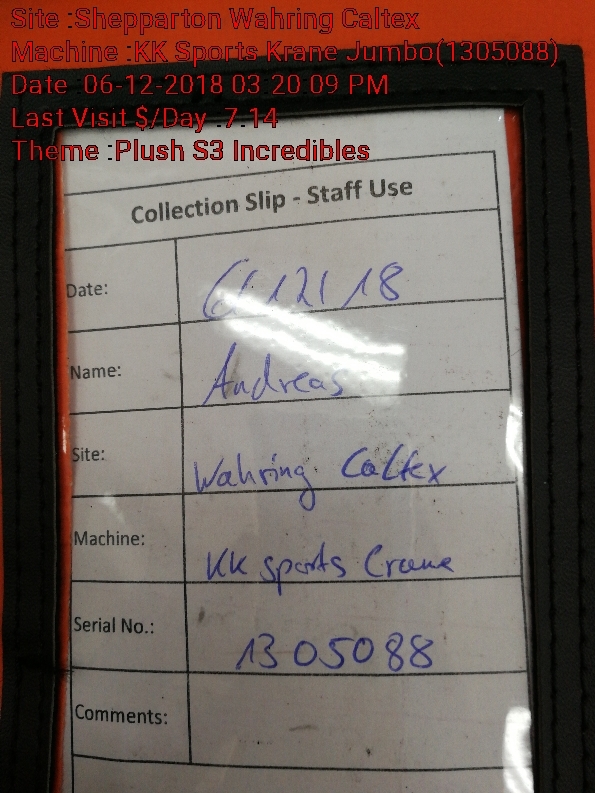 Site :Shepparton Wahring Caltex
Machine :KK Sports Krane Jumbo(1305088)
Date :06-12-2018 03:20:09 PM
Last Visit $/Day :7.14
Theme :Plush S3 Incredibles
Collection Slip - Staff Use
Date: 6/12/18
Name: Andreas
Site: Wahring Caltex
Machine: KK Sports Crane
Serial No.: 1305088
Comments: